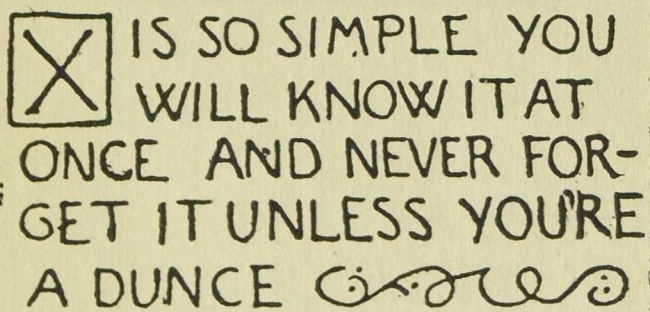 X IS SO SIMPLE YOU
WILL KNOW IT AT
ONCE AND NEVER FOR-
GET IT UNLESS YOU'RE
A DUNCE